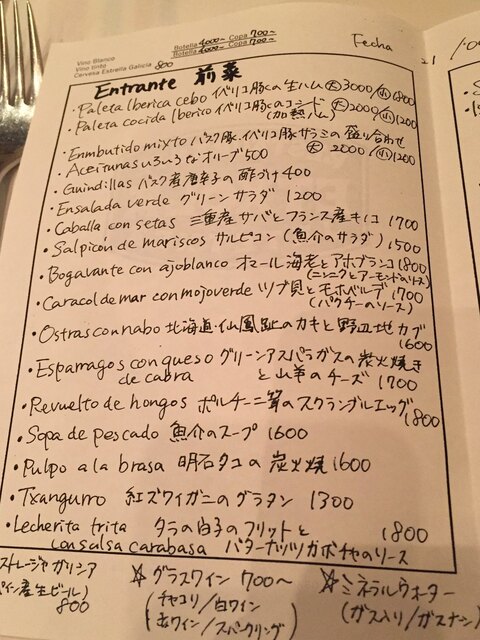 Vino Blanco Botella 4000~ Copa 700~
Vino tinto Botella 4000~ Copa 700~
Cervesa Estrella Galicia 800
Fecha
Entrante 前菜
・Paleta Iberica cebo イベリコ豚の生ハム 大3000/小1800
・Paleta cocida Iberico イベリコ豚のコシード 大2000/小1200
(加熱ハム)
・Enmbutido mixto バスク豚、イベリコ豚サラミの盛り合わせ
大 2000/小1200
・Aceitunas いろいろなオリーブ 500
・Guindillas バスク産唐辛子の酢づけ 400
・Ensalada verde グリーンサラダ 1200
・Caballa con setas 三重産サバとフランス産キノコ 1700
・Salpicón de mariscos サルピコン(魚介のサラダ) 1500
・Bogavante con ajoblanco オマール海老とアホブランコ 1800
(ニンニクとアーモンドのソース)
・Caracol de mar con mojo verde ツブ貝とモホベルデ 1700
(パクチーのソース)
・Ostras con nabo 北海道・仙鳳趾のカキと野辺地カブ
1600
・Esparragos con queso グリーンアスパラガスの炭火焼き
de cabra と山羊のチーズ 1700
・Revuelto de hongos ポルチーニ茸のスクランブルエッグ
1800
・Sopa de pescado 魚介のスープ 1600
・Pulpo a la brasa 明石タコの炭火焼 1600
・Txangurro 紅ズワイガニのグラタン 1300
・Lecherita frita タラの白子のフリットと 1800
con salsa carabasa バターナッツカボチャのソース
ストレージャガリシア
ペイン産生ビール)
800
☆グラスワイン 700~
(チャコリ/白ワイン
赤ワイン/スパークリング)
☆ミネラルウォーター
(ガス入り/ガスナシ)